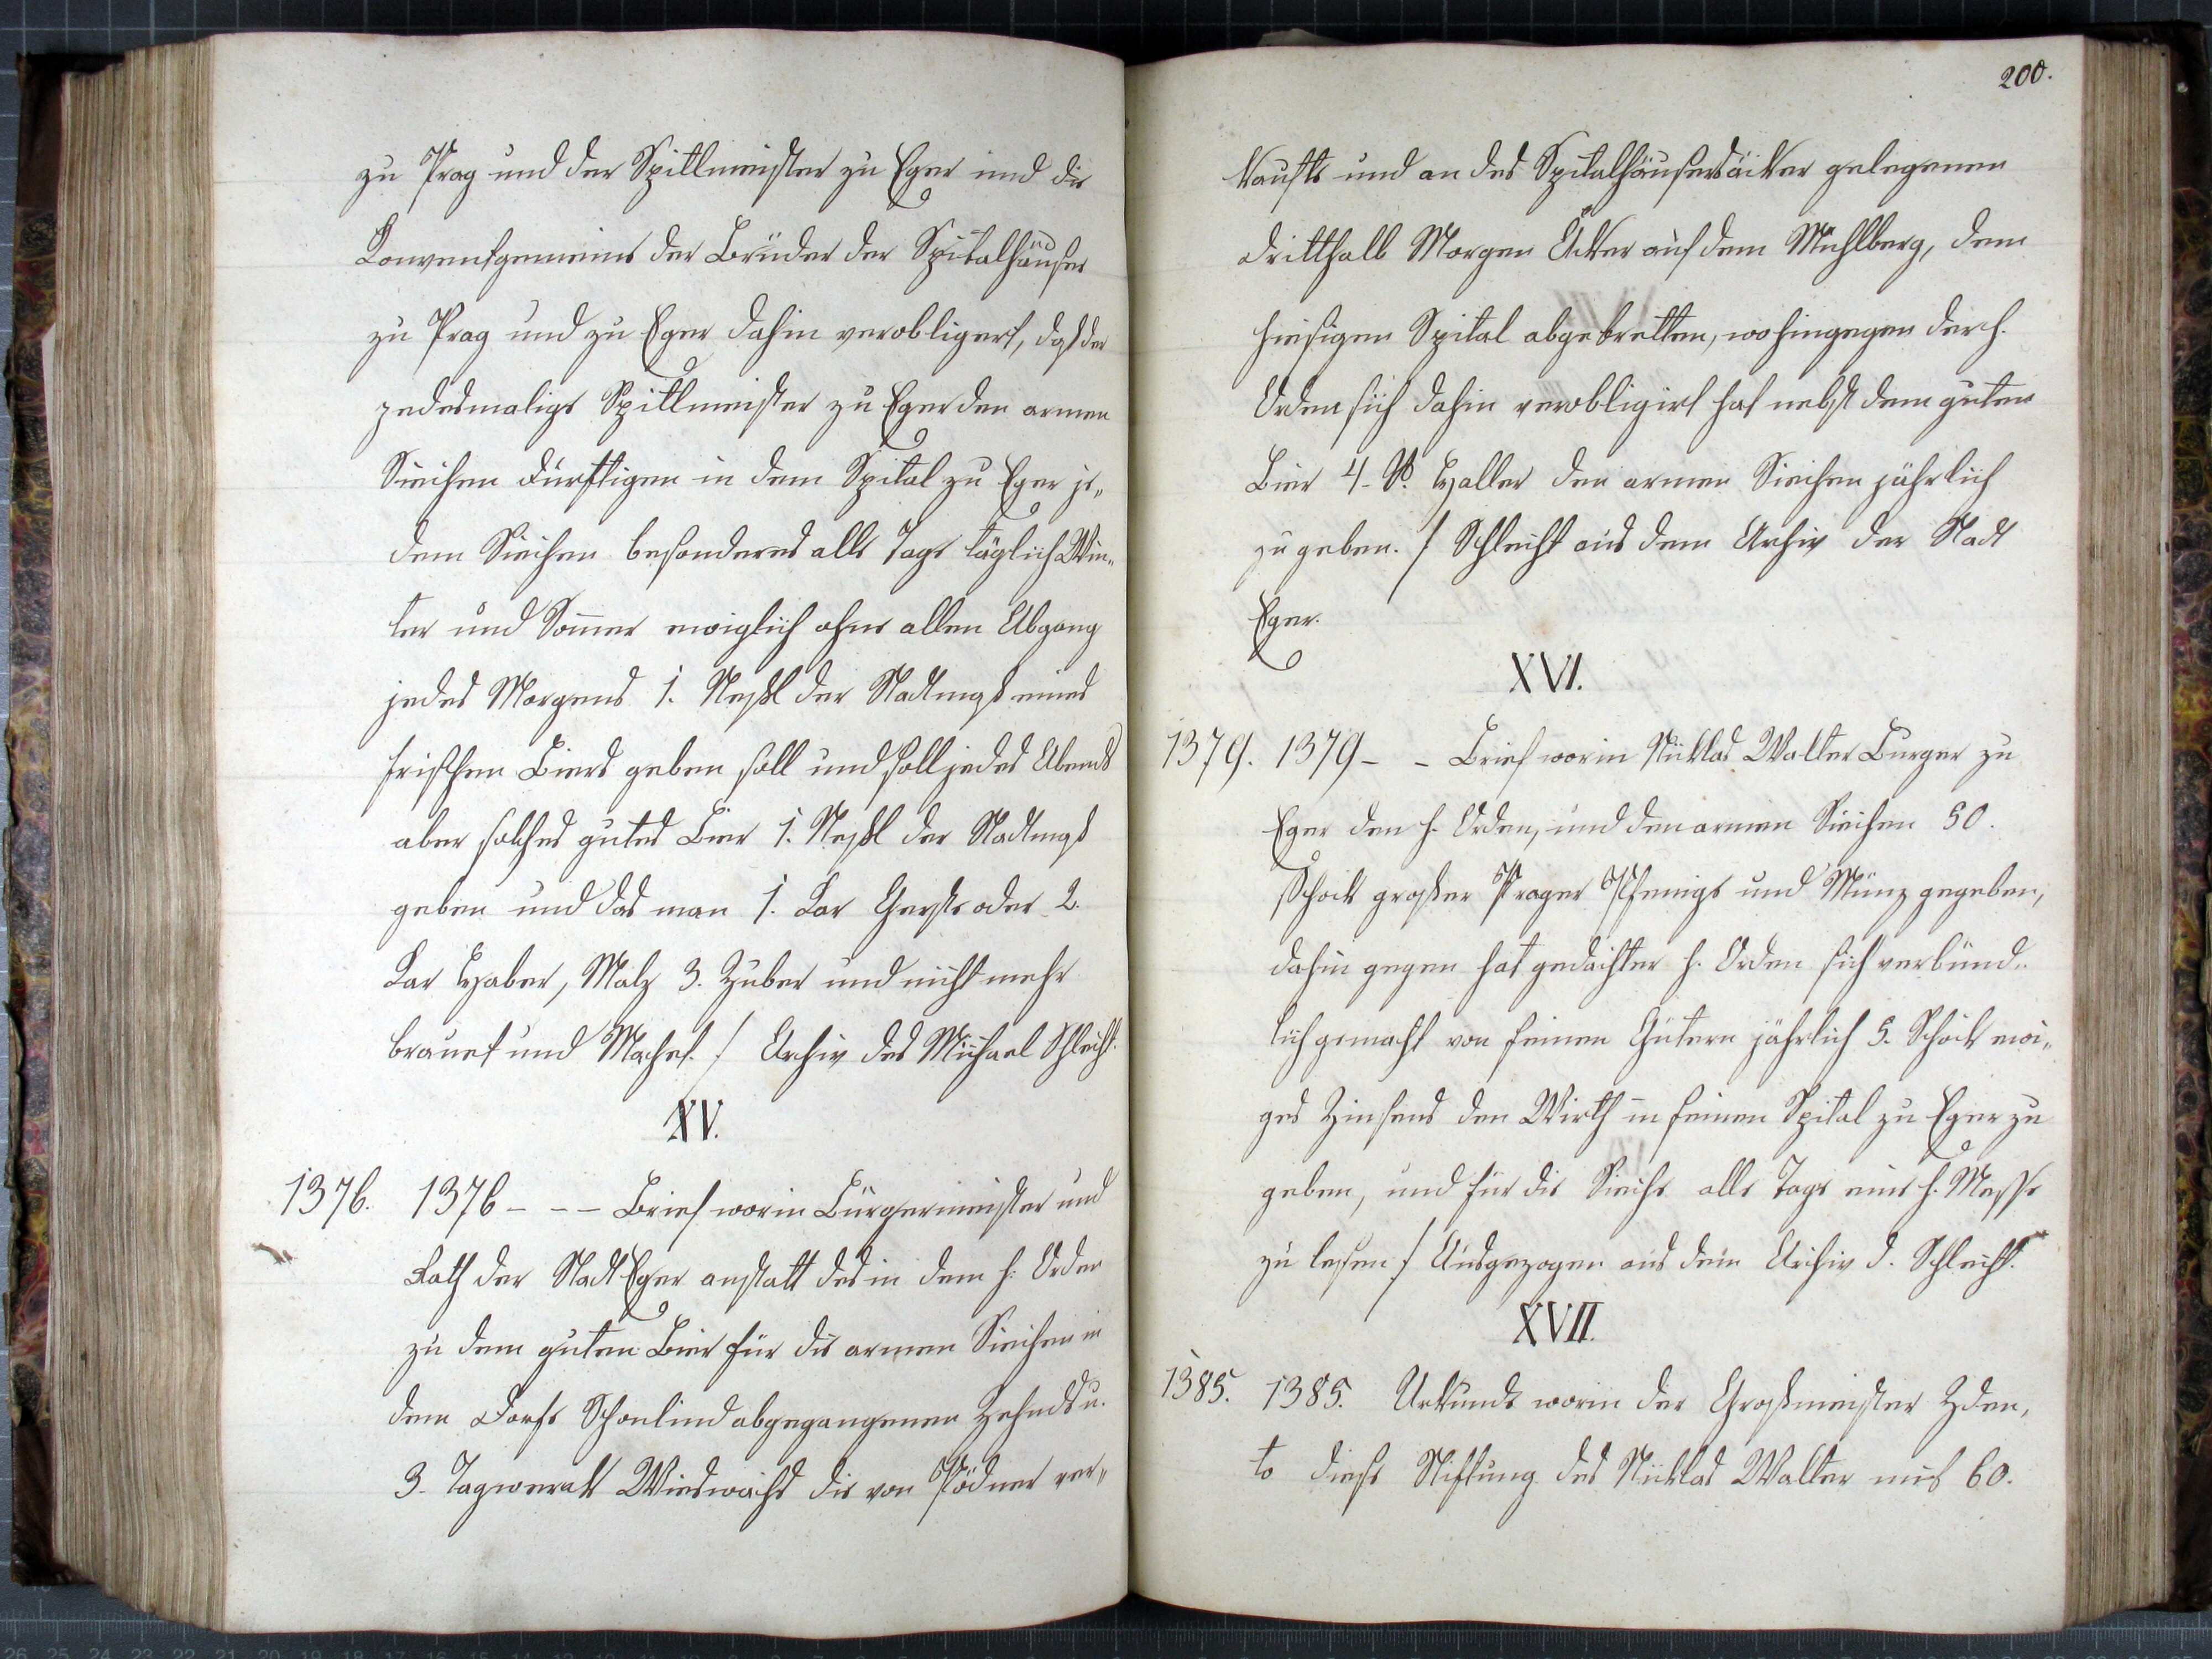 zu Prag und der Spittlmeister zu Eger und die
Conventgemeine der Brüder der Spitalhäuser
zu Prag und zu Eger dahin verobligert, daß der
jedesmalige Spittlmeister zu Eger den armen
Siechen dürftigen in dem Spital zu Eger je„
dem Siechen besonderes alle Tage täglich Win„
ter und Som̄er ewiglich ohne allen Abgang
jedes Morgens 1. Neßtl der Stadtmaß eines
frischen Biers geben soll und soll jedes Abends
aber solches gutes Bier 1. Neßtl der Stadtmaß
geben und das man 1. Kar Gerste oder 2.
Kar Haber, Malz 3. Zuber und nicht mehr
brauet und Machet. / Archiv des Michael Schlecht.
XV.
1376. 1376 – – – Brief worin Bürgermeister und
Rath der Stadt Eger anstatt des in dem h. Orden
zu dem guten Bier für die armen Siechen in
dem Dorfe Schonlind abgegangenen Zehnds u.
3. Tagwerck Wieswachs die von Pödner ver„
200.
kaufte und an des Spitalhäusersäcker gelegenen
dritthalb Morgen Äcker auf dem Mühlberg, dem
hiesigen Spital abgetretten, wohingegen der h.
Orden sich dahin verobligirt hat nebst dem guten
Bier 4. Haller den armen Siechen jährlich
zu geben. / Schlecht aus dem Archiv der Stadt
Eger.
XVI.
1379. 1379 – – Brief worin Nicklas Walter Burger zu
Eger den h. Orden, und den armen Siechen 50.
Schock großer Prager Pfennige und Münz gegeben,
dahin gegen hat gedachter h. Orden sich verbünd„
lich gemacht von seinen Gütern jährlich 5. Schock ewi„
ges Zinsens den Wirth in seinen Spital zu Eger zu
geben, und für die Sieche alle Tage eine h. Messe
zu lesen / Ausgezogen aus dem Archiv d. Schlecht.
XVII.
1385. 1385. Urkunde worin der Großmeister Zden„
ko diese Stiftung des Nicklas Walter mit 60.